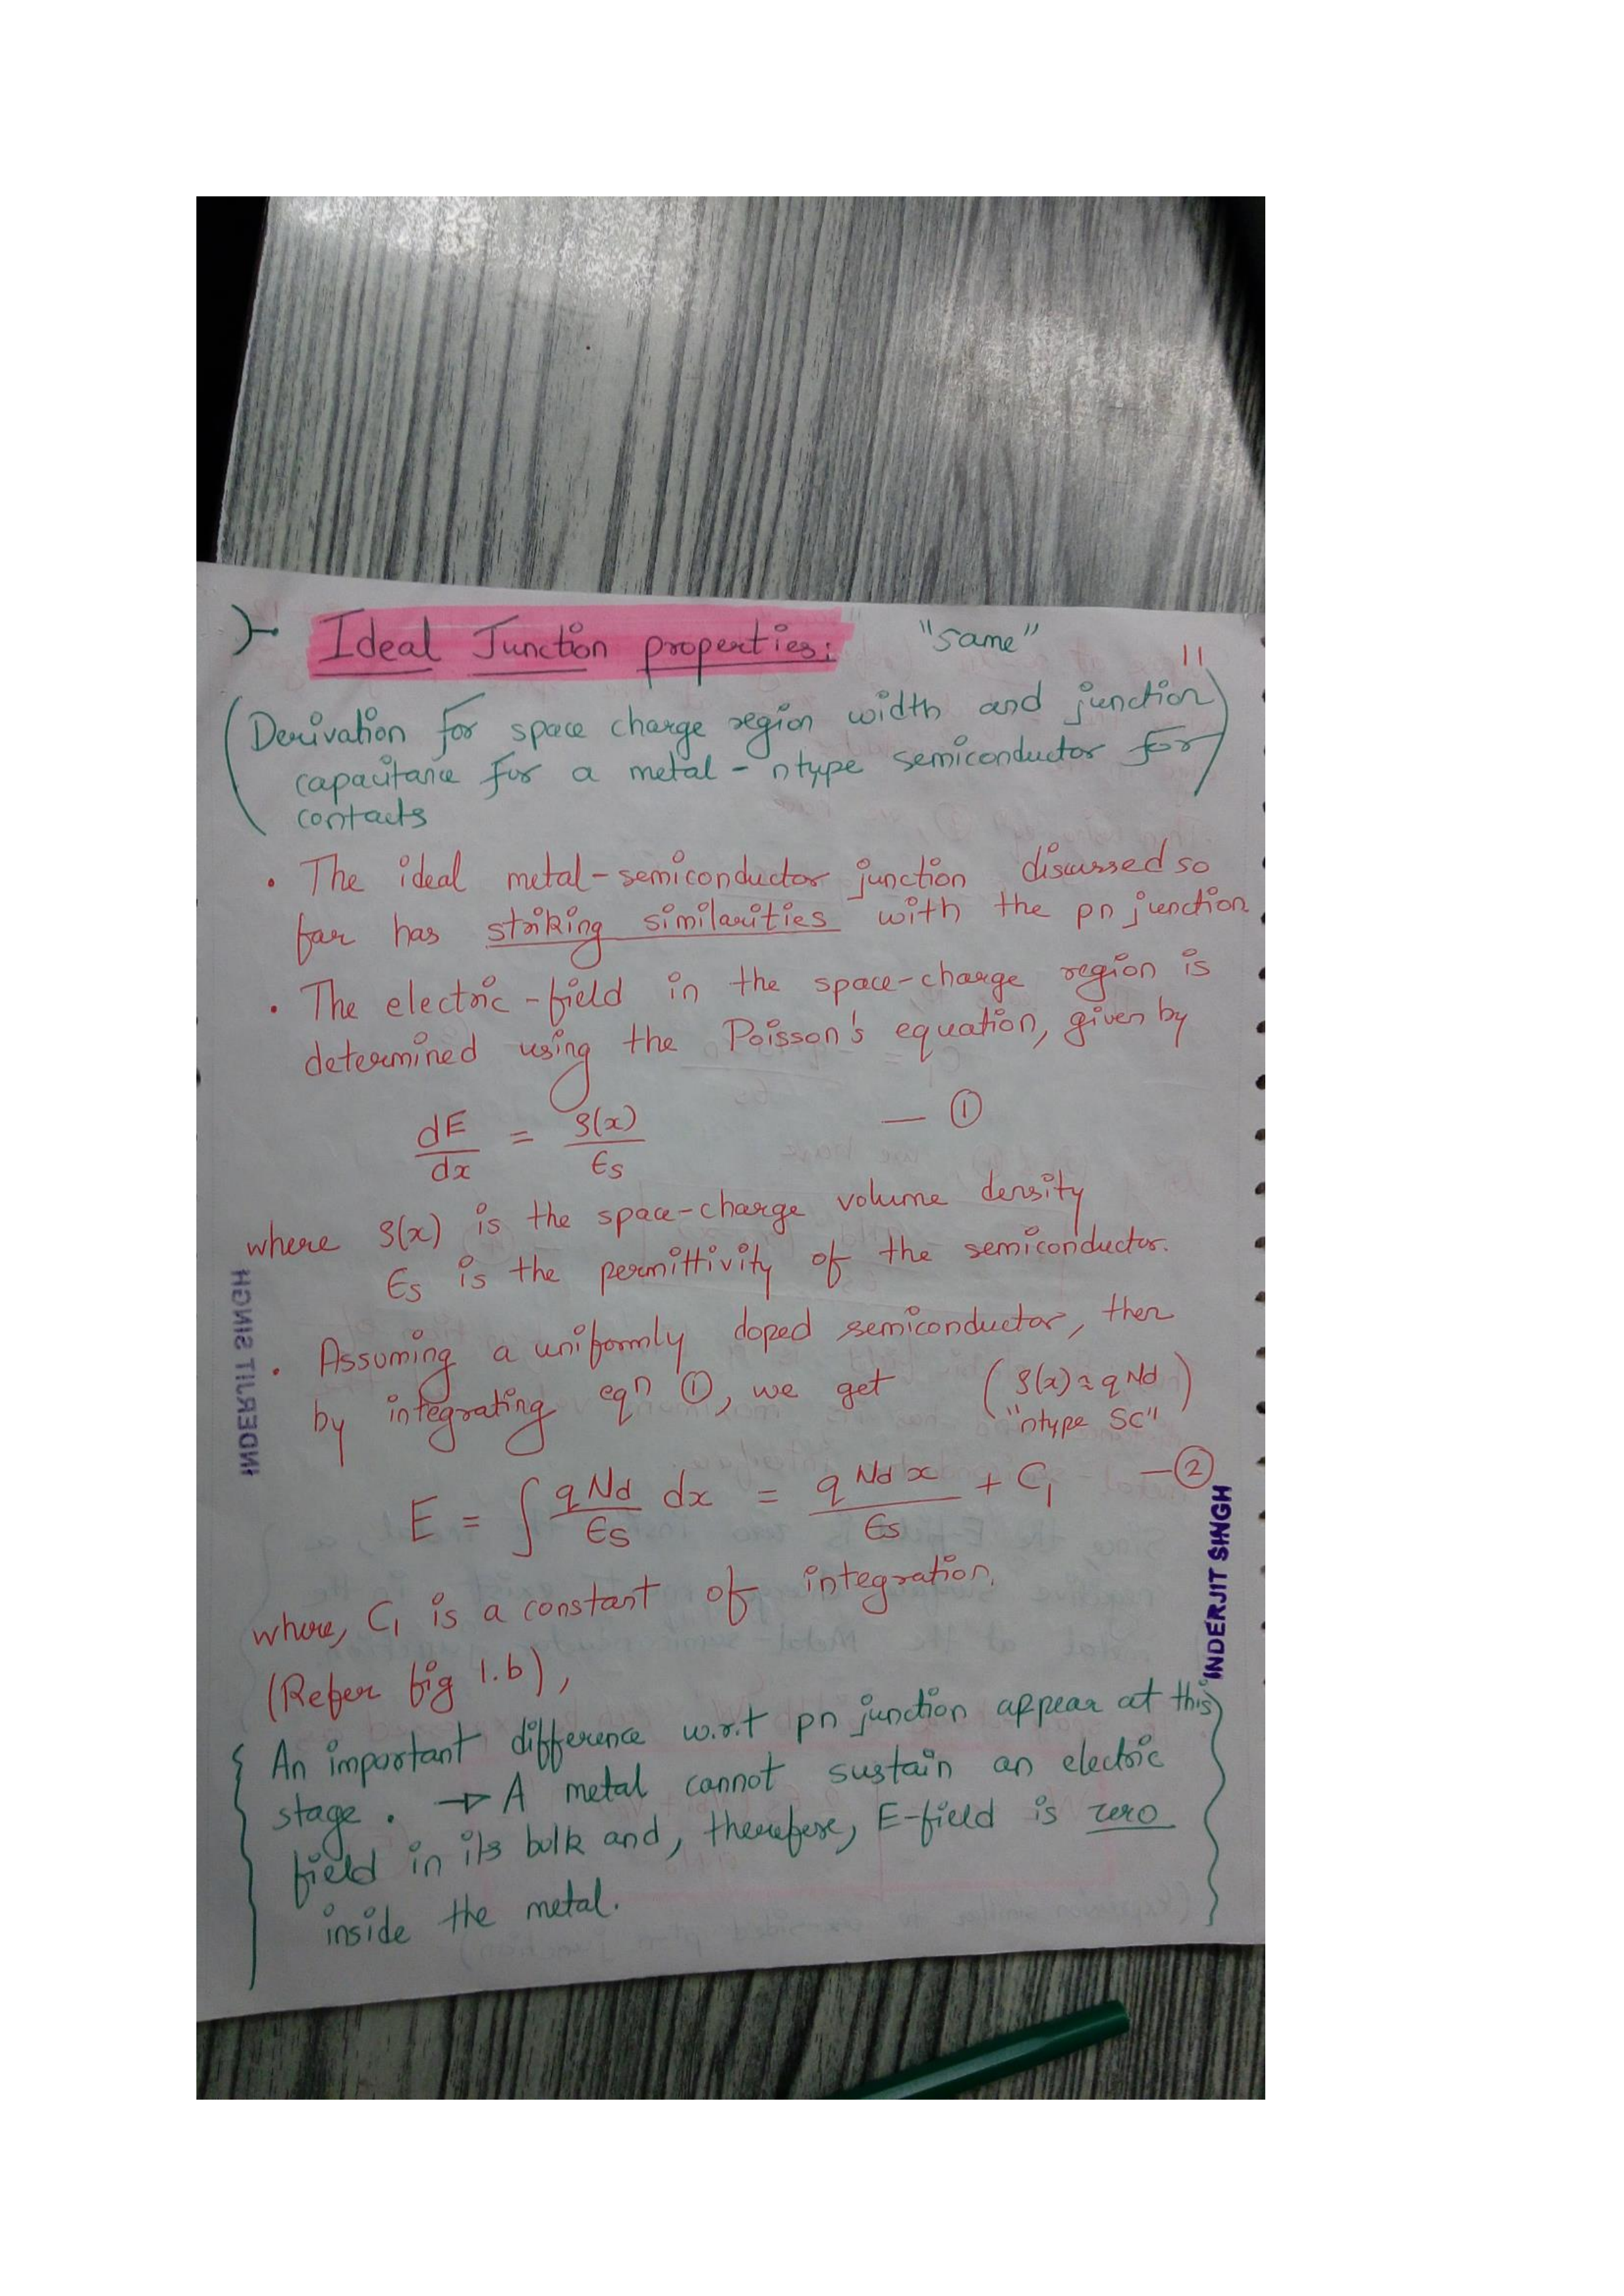 Ideal Junction properties: "same" 11
(Derivation for space charge region width and junction
capacitance for a metal - ntype semiconductor for)
contacts
• The ideal metal-semiconductor junction discussed so
far has striking similarities with the pn junction
• The electric-field in the space-charge region is
determined using the Poisson's equation, given by
dE/dx = ρ(x)/ϵs — ①
where ρ(x) is the space-charge volume density
ϵs is the permittivity of the semiconductor.
• Assuming a uniformly doped semiconductor, then
by integrating eqn ①, we get (ρ(x) ≈ qNd)
"ntype SC"
E = ∫ qNd/ϵs dx = qNdx/ϵs + C₁ — ②
where, C₁ is a constant of integration.
(Refer fig 1.b),
An important difference w.r.t pn junction appear at this
stage. → A metal cannot sustain an electric
field in its bulk and, therefore, E-field is zero
inside the metal.
INDERJIT SINGH
INDERJIT SINGH